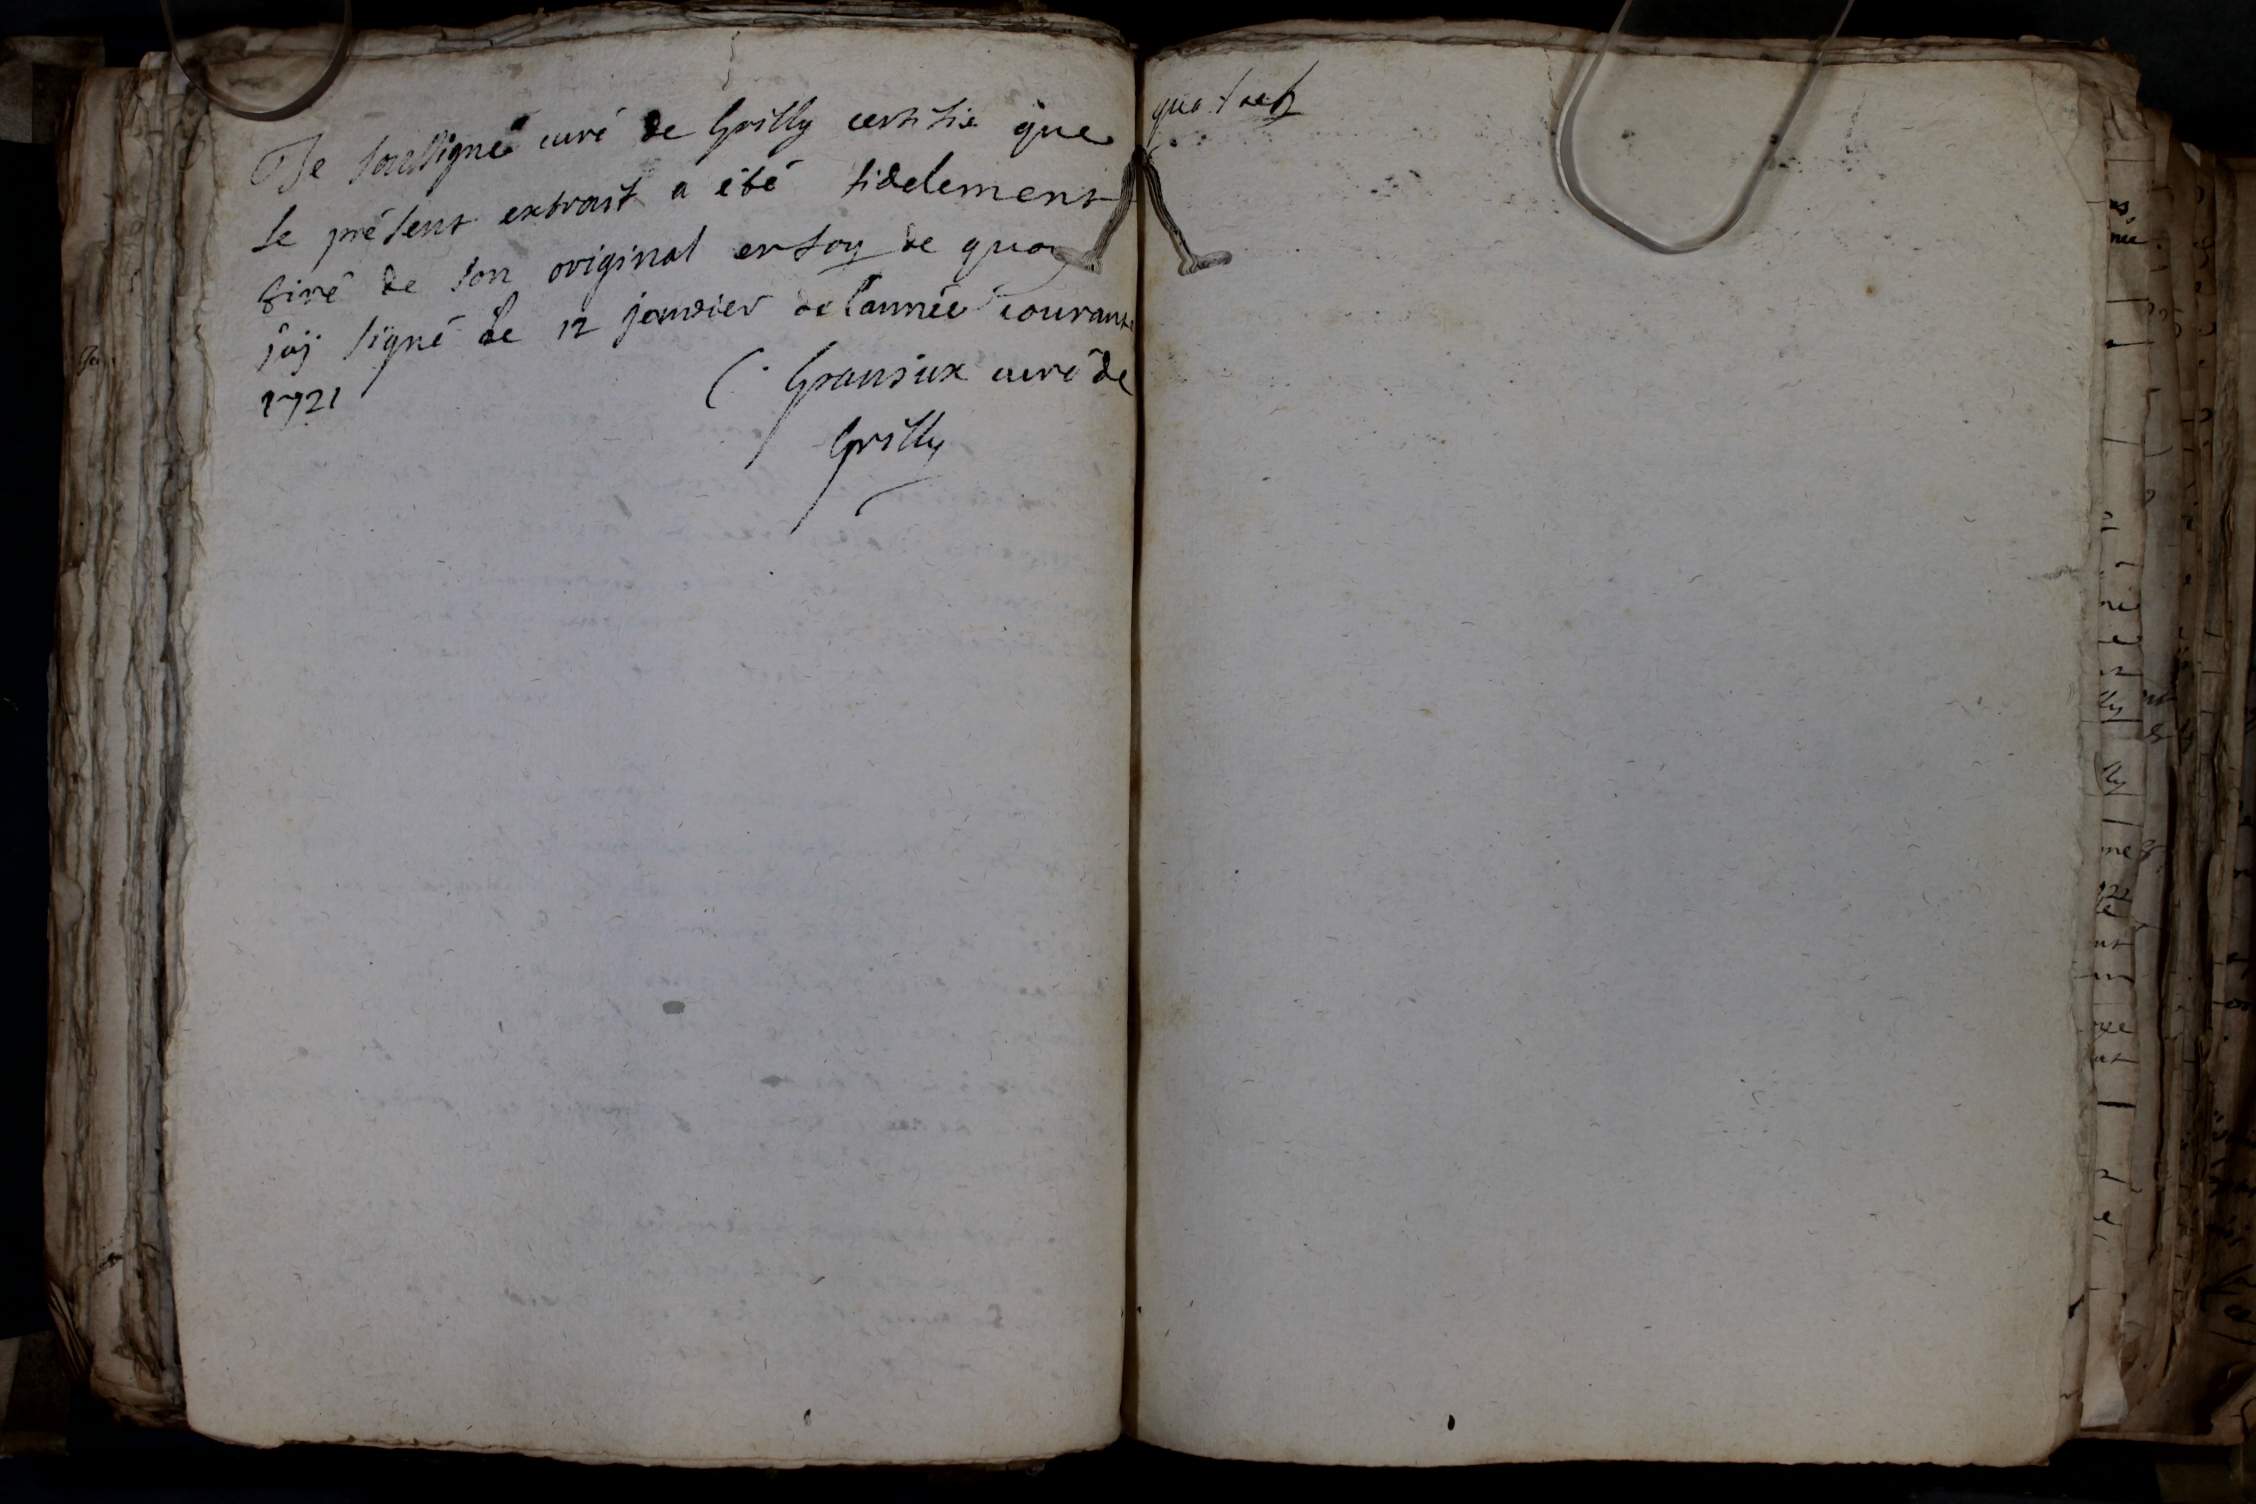 Je soussigné curé de Grilly certifie que
le présent extrait a été fidelement
tiré de son original en foy de quoy
j'ay signé le 12 janvier de l'année courante
1721
curé de
Grilly